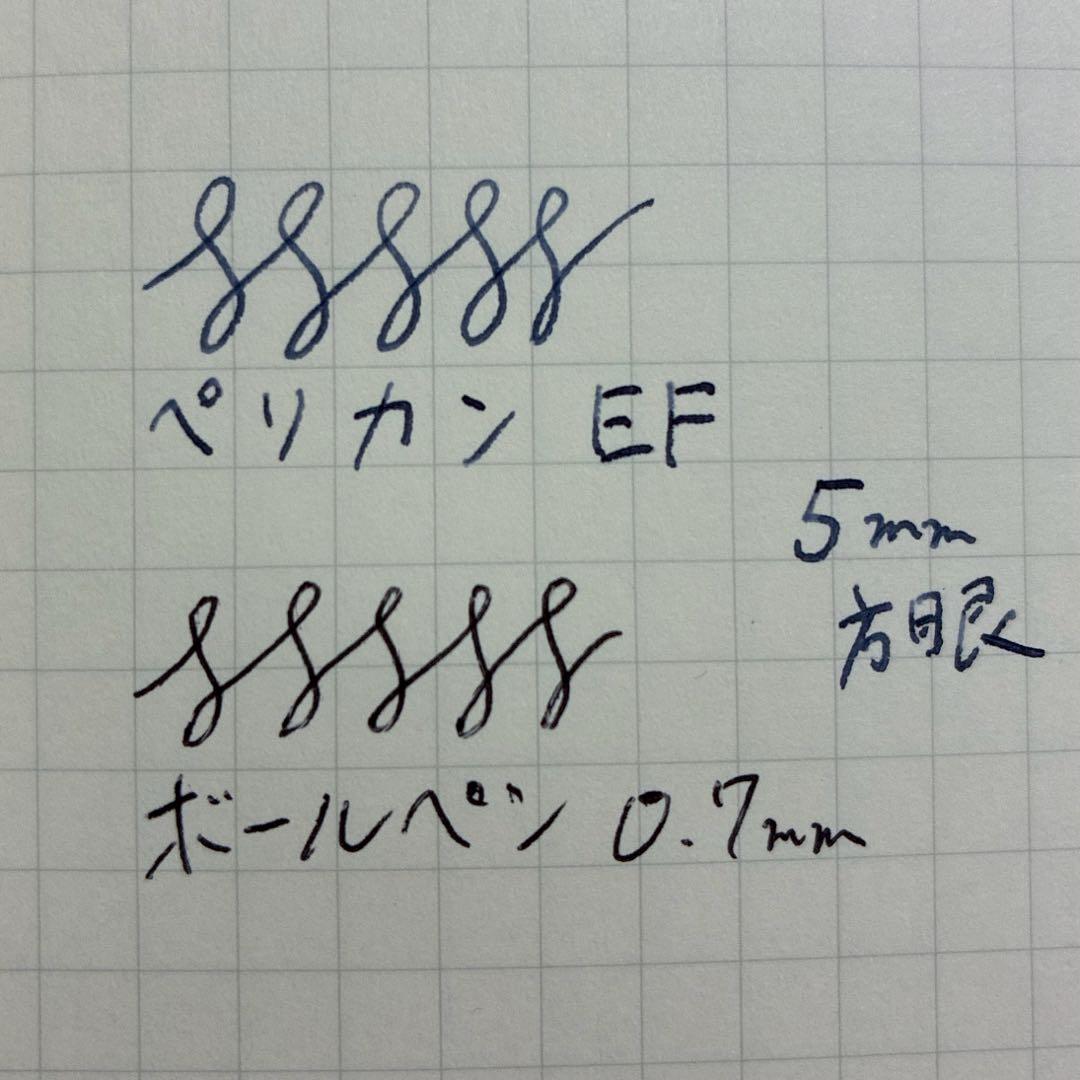 ペリカン EF
5mm
方眼
ボールペン 0.7mm